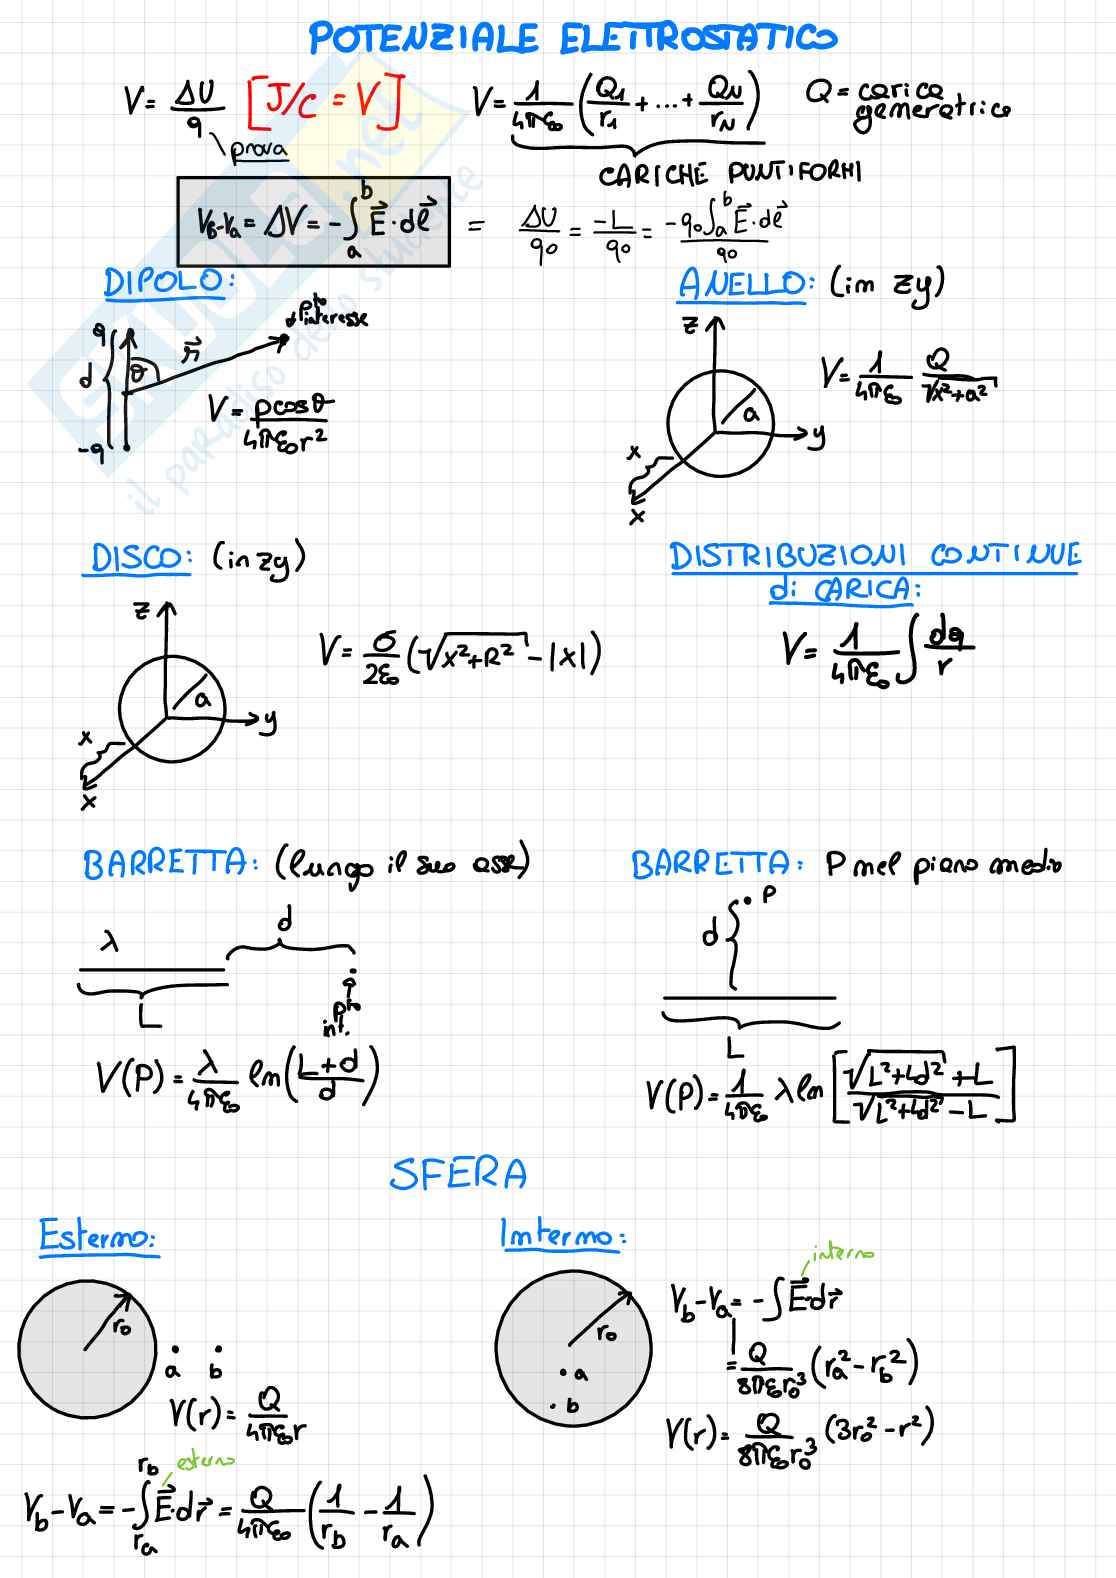 POTENZIALE ELETTROSTATICO
V = ΔU/q [J/C = V]
prova
V = 1/4πε₀ (Q₁/r₁ + ... + Q_N/r_N)
CARICHE PUNTIFORMI
Q = carica
generatrice
V_b - V_a = ΔV = -∫ₐᵇ E⃗·dℓ⃗ = ΔU/q₀ = -L/q₀ = -q₀∫ₐᵇ E⃗·dℓ⃗/q₀
DIPOLO:
q
d
-q
θ
r⃗
pto
d'interesse
V = pcosθ/4πε₀r²
ANELLO: (in zy)
z
a
y
x
x
V = 1/4πε₀ Q/√x²+a²
DISCO: (in zy)
z
a
y
x
x
V = σ/2ε₀ (√x²+R² - |x|)
DISTRIBUZIONI CONTINUE
di CARICA:
V = 1/4πε₀ ∫ dq/r
BARRETTA: (lungo il suo asse)
λ
d
L
pto
int.
V(P) = λ/4πε₀ ln(L+d/d)
BARRETTA: P nel piano medio
P
d
L
V(P) = 1/4πε₀ λ ln [√L²+4d² + L/√L²+4d² - L]
SFERA
Esterno:
r₀
a b
V(r) = Q/4πε₀r
esterno
V_b - V_a = -∫_{r_a}^{r_b} E⃗·dr⃗ = Q/4πε₀ (1/r_b - 1/r_a)
Interno:
r₀
a
b
interno
V_b - V_a = -∫E⃗·dr⃗
= Q/8πε₀r₀³ (r_a² - r_b²)
V(r) = Q/8πε₀r₀³ (3r₀² - r²)
SKUOLA.net
il paradiso dello studente